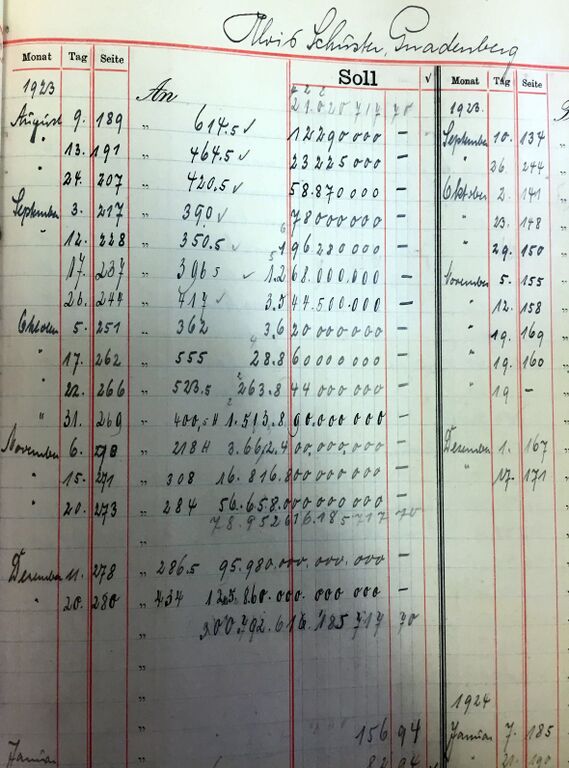 Alois Schuster, Gnadenberg
Monat Tag Seite Soll √ Monat Tag Seite
1923 An 21 020 717 70 1923.
August 9. 189 " 614.5 ✓ 12 290 000 – September 10. 134
" 13. 191 " 464.5 ✓ 23 225 000 – " 26. 244
" 24. 207 " 420.5 ✓ 58.870 000 – Oktober 2. 141
September 3. 217 " 390 ✓ 78 000 000 – " 23. 148
" 12. 228 " 350.5 ✓ 196 280 000 – " 29. 150
" 17. 237 " 396 5 ✓ 1.268.000.000 – November 5. 155
" 26. 244 " 417 ✓ 3.544.500.000 – " 12. 158
Oktober 5. 251 " 362 3.620 000 000 – " 19. 169
" 17. 262 " 555 28.860 000 000 – " 19. 160
" 22. 266 " 523.5 263.844 000 000 – " 19 –
" 31. 269 " 1.513.890.000.000 –
November 6. " 218 H 3.662.400.000.000 – Dezember 1. 167
" 15. 271 " 308 16.816.800 000 000 – " 17. 171
" 20. 273 " 284 56.658.000 000 000 –
78.952 616.185 717 70
Dezember 11. 278 " 286.5 95.980.000.000.000 –
" 20. 280 " 434 125.860.000 000 000 –
" 300 792.616.185 717 70
"
"
" 1924
" 156 94 Januar 7. 185
Januar 82 94 " 21. 190